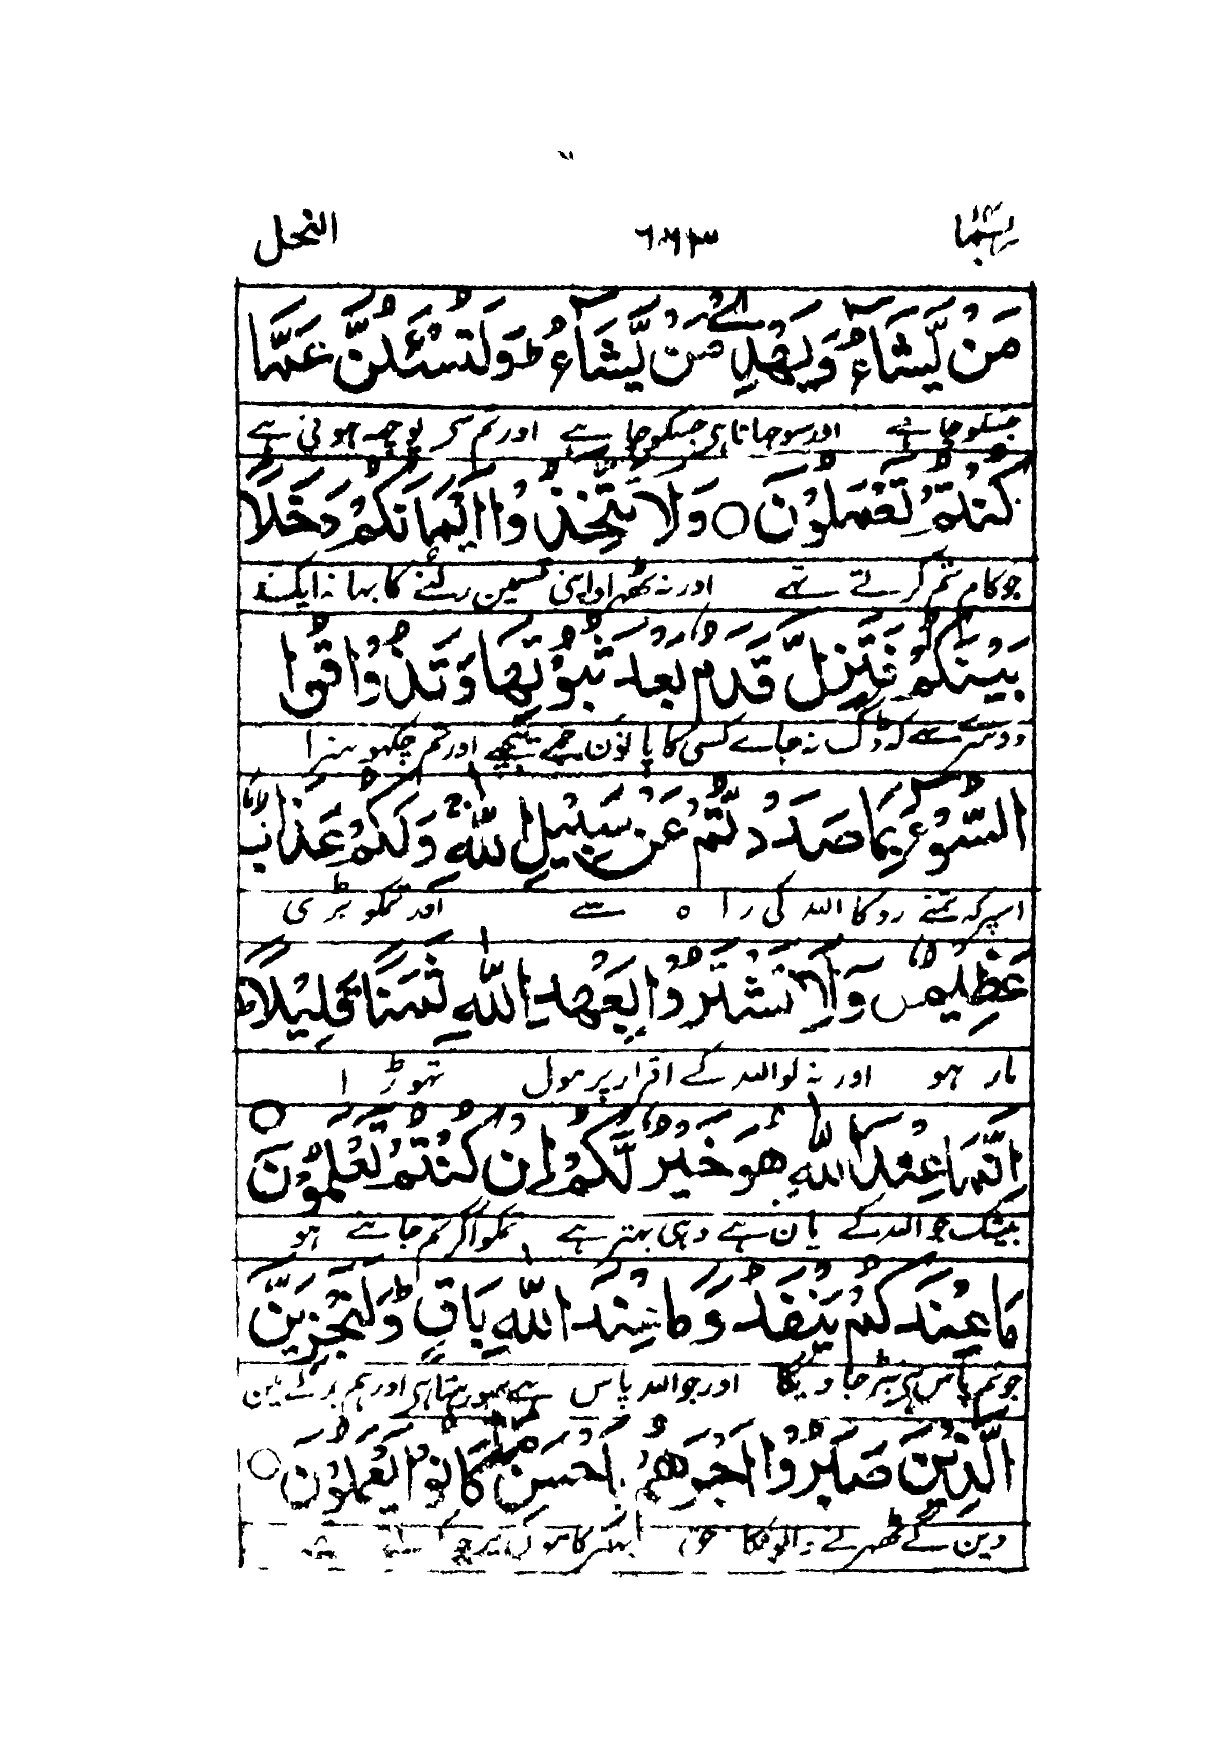 ربما ۱۴ ۶۶۳ النحل
مَنْ يَّشَآءُ وَيَهْدِيْ مَنْ يَّشَآءُ ؕ وَلَتُسْـَٔلُنَّ عَمَّا
جسکو چاہے اور سوجھاتا ہی جسکو چاہے اور تم سے پوچھہ ہونی ہے
كُنْتُمْ تَعْمَلُوْنَ ○ وَلَا تَتَّخِذُوْٓا اَيْمَانَكُمْ دَخَلًاۢ
جو کام تم کرتے تھے اور نہ ٹھہراو اپنی قسمین رکنے کا بہانہ ایک
بَيْنَكُمْ فَتَزِلَّ قَدَمٌۢ بَعْدَ ثُبُوْتِهَا وَتَذُوْقُوا
دوسرے سے کہ ڈگ نہ جاے کسی کا پانؤن جمے پیچھے اور تم چکھو سزا
السُّوْٓءَ بِمَا صَدَدْتُّمْ عَنْ سَبِيْلِ اللّٰهِ ۚ وَلَكُمْ عَذَابٌ
اسپر کہ تمنے روکا اللہ کی راہ سے اور تمکو بڑی
عَظِيْمٌ وَلَا تَشْتَرُوْا بِعَهْدِ اللّٰهِ ثَمَنًا قَلِيْلًا ؕ
مار ہو اور نہ لو اللہ کے اقرار پر مول تھوڑا
اِنَّمَا عِنْدَ اللّٰهِ هُوَ خَيْرٌ لَّكُمْ اِنْ كُنْتُمْ تَعْلَمُوْنَ ○
بیشک جو اللہ کے یہان ہے وہی بہتر ہے تمکو اگر تم جانتے ہو
مَا عِنْدَكُمْ يَنْفَدُ وَمَا عِنْدَ اللّٰهِ بَاقٍ ؕ وَلَنَجْزِيَنَّ
جو تم پاس ہی نبڑ جاویگا اور جو اللہ پاس ہے سو رہتا ہی اور ہم بدلے مین
الَّذِيْنَ صَبَرُوْٓا اَجْرَهُمْ بِاَحْسَنِ مَا كَانُوْا يَعْمَلُوْنَ ○
دین گے ٹھہرنے والونکا حق بہتر کامون پر جو کرتے تھے